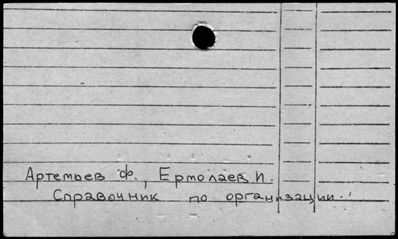 Артемьев Ф., Ермолаев И.
Справочник по организации.